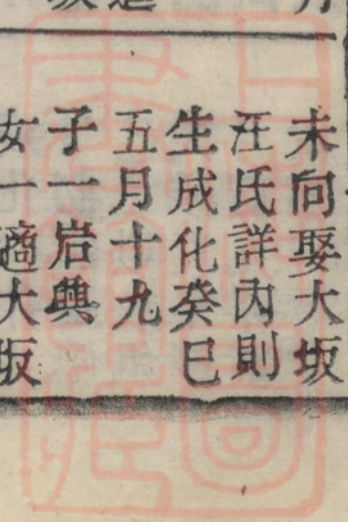 未向娶大坂
汪氏詳內則
生成化癸巳
五月十九
子一岩興
女一適大坂